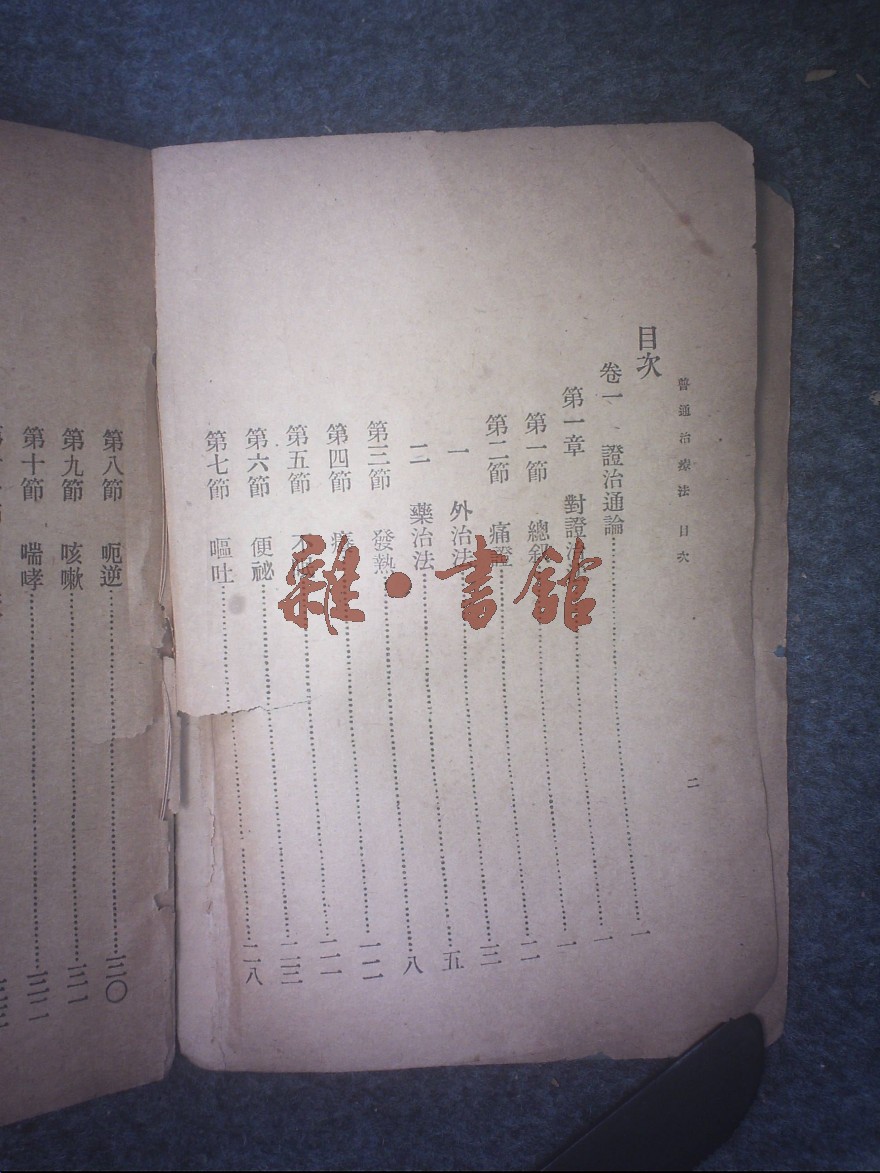 普通治療法 目次 二
目次
卷一 證治通論……一
第一章 對證……一
第一節 總叙……一
第二節 痛證……二
一 外治法……三
二 藥治法……五
第三節 發熱……八
第四節……一二
第五節……二一
第六節 便祕……二三
第七節 嘔吐……二八
第八節 呃逆……三〇
第九節 咳嗽……三一
第十節 喘哮……三二
雜·書館